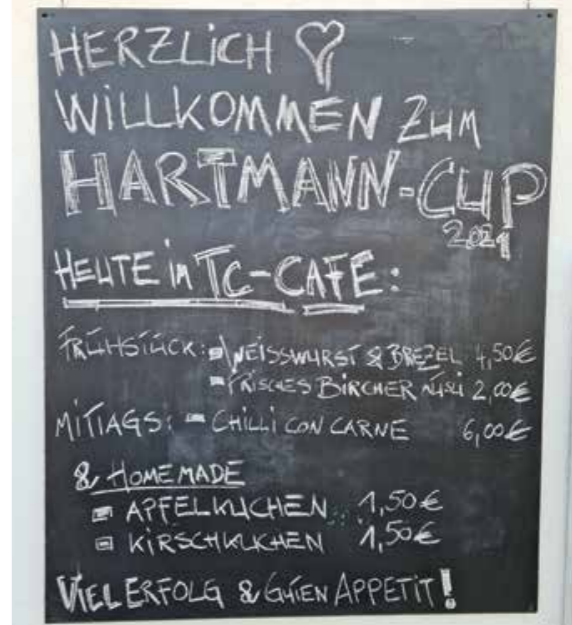 HERZLICH
WILLKOMMEN ZUM
HARTMANN-CUP
2021
HEUTE im TC-CAFE:
FRÜHSTÜCK: - WEISSWURST & BREZEL 4,50€
- FRISCHES BIRCHER MÜSLI 2,00€
MITTAGS: - CHILLI CON CARNE 6,00€
& HOMEMADE
- APFELKUCHEN 1,50€
- KIRSCHKUCHEN 1,50€
VIEL ERFOLG & GUTEN APPETIT!